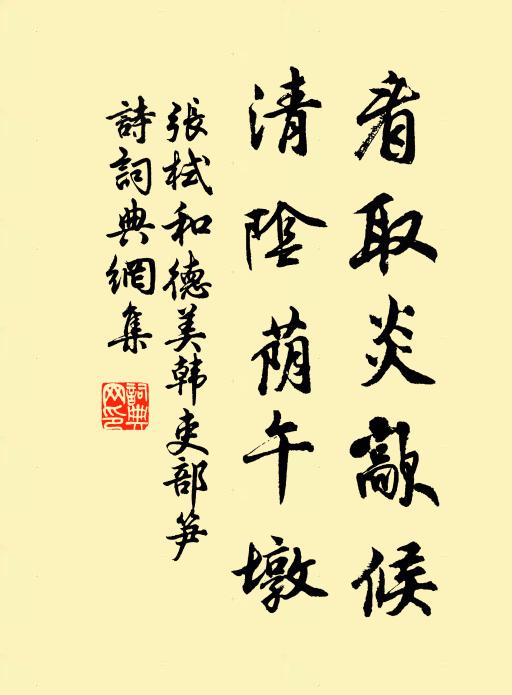 看取炎歊候
清陰荫午墩
張栻和德美韩吏部笋
詩詞典網集
詞典网印